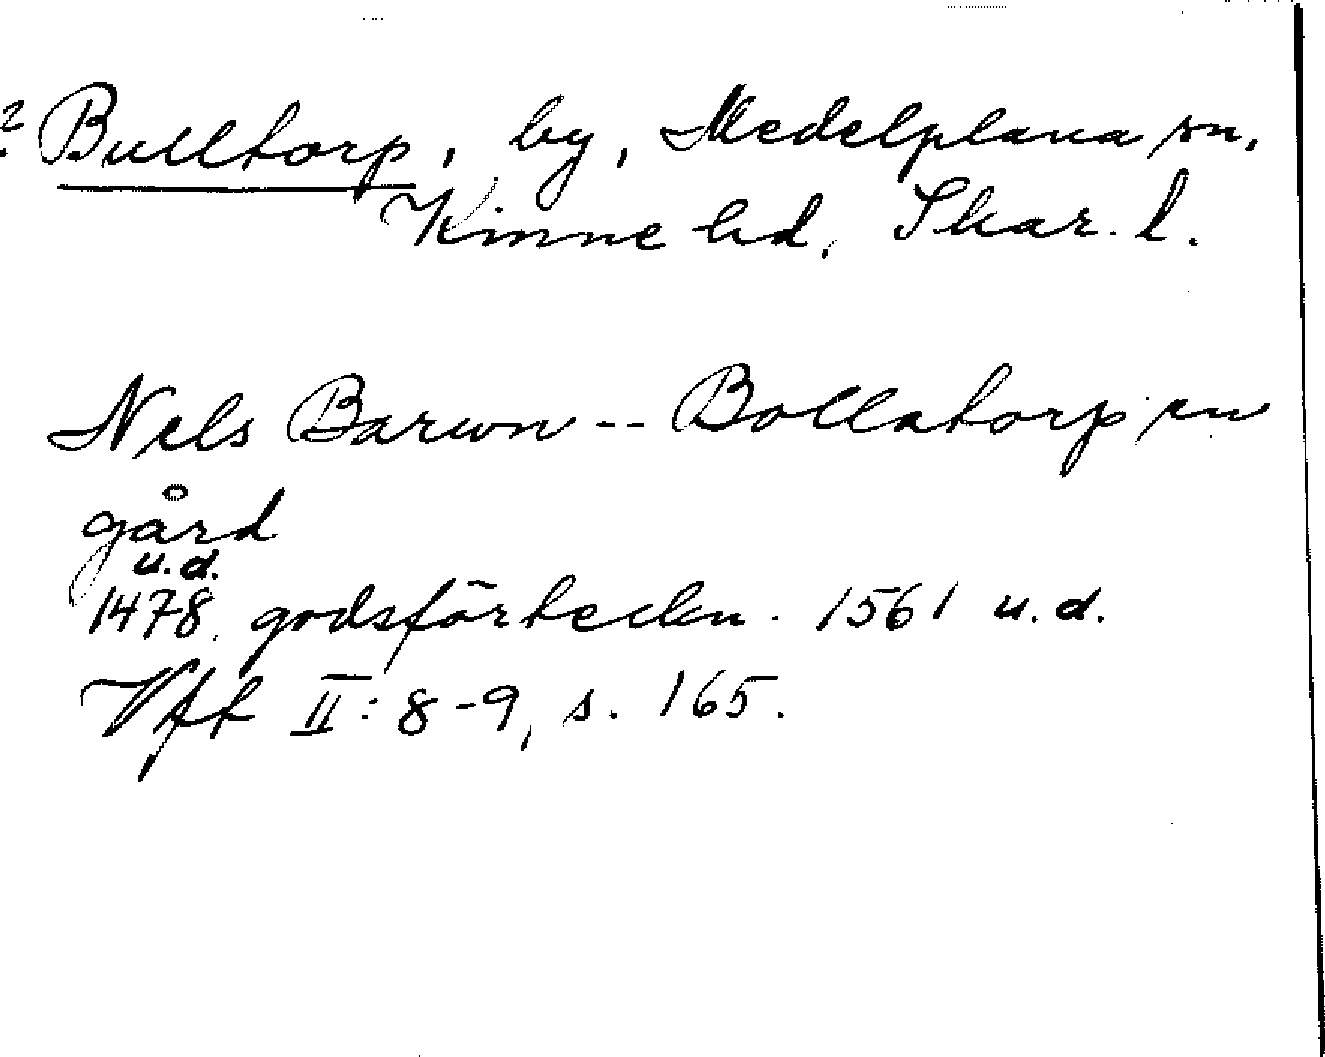 ? Bulltorp, by, Medelplana sn,
Kinne hd, Skar. l.
Nels Barwn -- Bollatorp en
gård
u.d.
1478. godsförteckn. 1561 u.d.
Vft II: 8-9, s. 165.